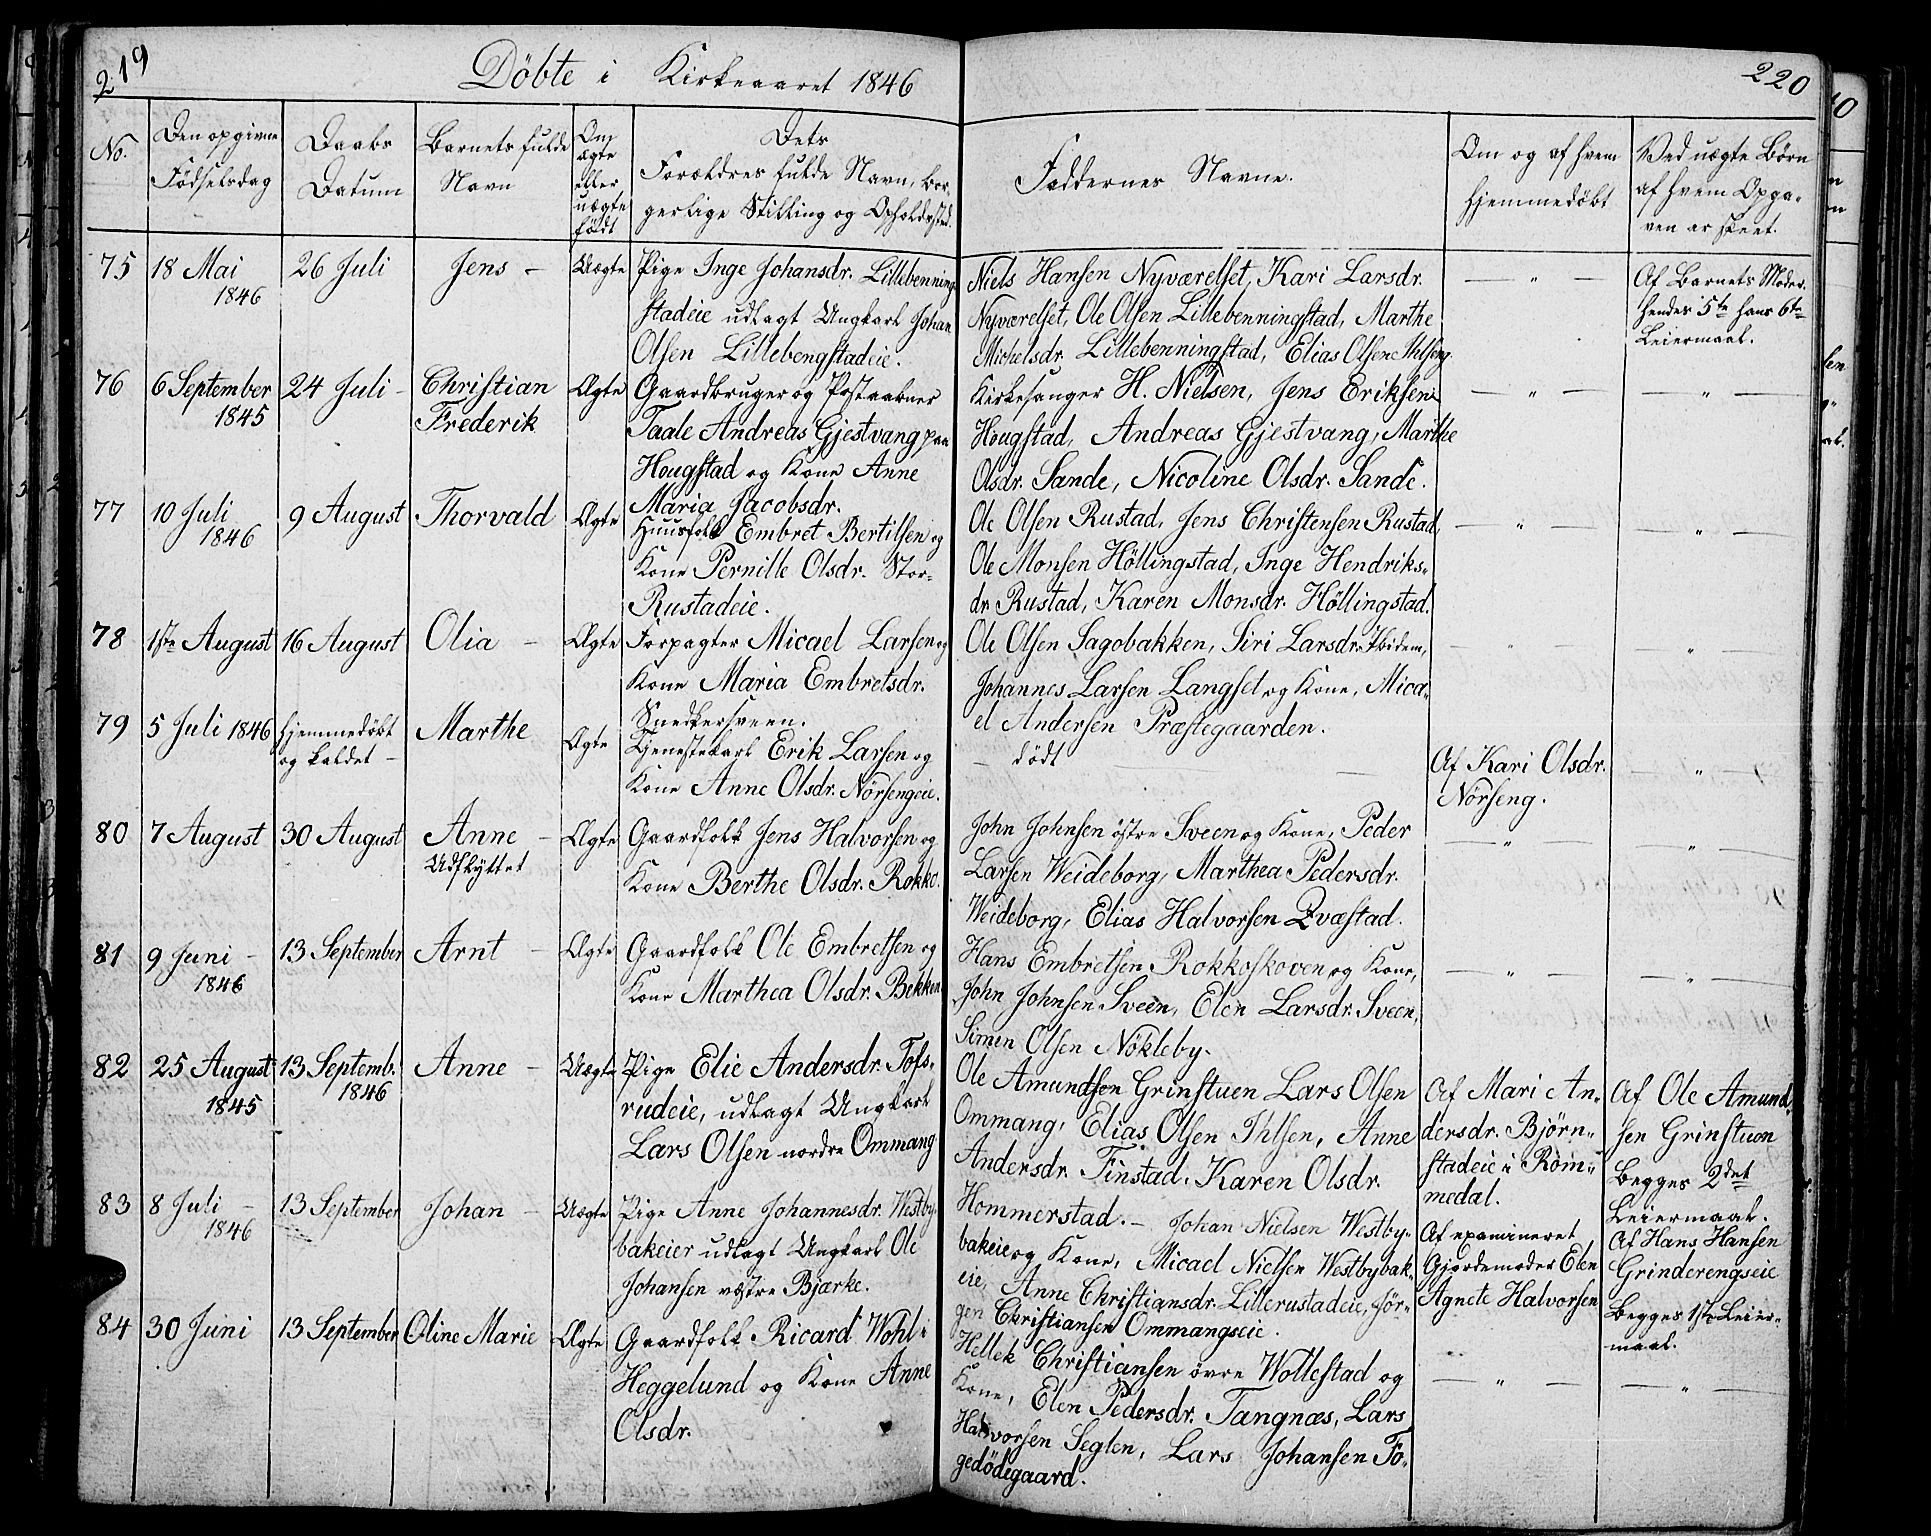 219
Döbte i Kirkeaaret 1846
220
No.
Den opgivne Födselsdag
Daabs Datum
Barnets fulde Navn
Om ægte eller uægte födt
Dets Forældres fulde Navn, borgerlige Stilling og Opholdssted.
Faddernes Navne.
Om og af hvem hjemmedöbt
Ved uægte Börn af hvem Opgaven er skeet.
75 18 Mai 1846
26 Juli
Jens –
Uægte
Pige Inge Johansdr. Lillebenning-
stadeie udlagt Ungkarl Johan
Olsen Lillebengstadeie.
Niels Hansen Nyværelset, Kari Larsdr.
Nyværelset, Ole Olsen Lillebenningstad, Marthe
Michelsdr. Lillebenningstad, Elias Olsen Ihlseng.
Af Barnets Moder.
hendes 5te hans 6te
Leiermaal.
76 6 September 1845
24 Juli –
Christian
Frederik
Ægte
Gaardbruger og Postaabner
Taale Andreas Gjestvang paa
Hougstad og Kone Anne
Maria Jacobsdr.
Kirkesanger H. Nielsen, Jens Eriksen
Hougstad, Andreas Gjestvang, Marthe
Olsdr. Sande, Nicoline Olsdr. Sande.
77 10 Juli 1846
9 August
Thorvald
Ægte
Huusfolk Embret Bertilsen og
Kone Pernille Olsdr. Stor-
Rustadeie.
Ole Olsen Rustad, Jens Christensen Rustad,
Ole Monsen Höllingstad, Inge Hendriks-
dr. Rustad, Karen Monsdr. Höllingstad.
78 1ste August
16 August
Olia –
Ægte
Forpagter Micael Larsen og
Kone Maria Embretsdr.
Snedkersveen.
Ole Olsen Sagobakken, Siri Larsdr. Ibidem,
Johannes Larsen Langset og Kone, Mica-
el Andersen Præstegaarden.
79 5 Juli 1846
hjemmedöbt
og kaldet –
Marthe
Ægte
Tjenestekarl Erik Larsen og
Kone Anne Olsdr. Nörsengeie.
– dödt
Af Kari Olsdr.
Nörseng.
80 7 August
30 August
Anne –
Udflyttet
Ægte
Gaardfolk Jens Halvorsen og
Kone Berthe Olsdr. Rokko.
John Johnsen östre Sveen og Kone, Peder
Larsen Weideborg, Marthea Pedersdr.
Weideborg, Elias Halvorsen Qvæstad.
81 9 Juni – 1846
13 September
Arnt –
Ægte
Gaardfolk Ole Embretsen og
Kone Marthea Olsdr. Bekken
Hans Embretsen Rokkoskoven og Kone,
John Johnsen Sveen, Elen Larsdr. Sveen,
Simen Olsen Nökleby.
82 25 August 1845
13 Septemb. 1846
Anne –
Uægte
Pige Elie Andersdr. Tofs-
rudeie, udlagt Ungkarl
Lars Olsen nordre Ommang
Ole Amundsen Grinstuen Lars Olsen
Ommang, Elias Olsen Ihlsen, Anne
Andersdr. Finstad, Karen Olsdr.
Hommerstad. –
Af Mari An-
dersdr. Björn-
stadeie i Röm-
medal.
Af Ole Amund-
sen Grinstuen
Begges 2det
Leiermaal.
83 8 Juli – 1846
13 September
Johan –
Uægte
Pige Anne Johannesdr. Westby-
bakeier udlagt Ungkarl Ole
Johansen vestre Bjerke.
Johan Nielsen Westby-
bakeie og Kone, Micael Nielsen Westbybak-
eie, Anne Christiansdr. Lillerustadeie, Jör-
gen Christiansen Ommangseie.
Af examineret
Gjordemoder Elen
Agnete Halvorsen
Af Hans Hansen
Grinderengseie
Begges 1ste Leier-
maal.
84 30 Juni
13 September
Oline Marie
Ægte
Gaardfolk Ricard Wohl i
Heggelund og Kone Anne
Olsdr.
Hellek Christiansen övre Wollestad og
Kone, Elen Pedersdr. Tangnæs, Lars
Halvorsen Seglen, Lars Johansen Fo-
gedödegaard.